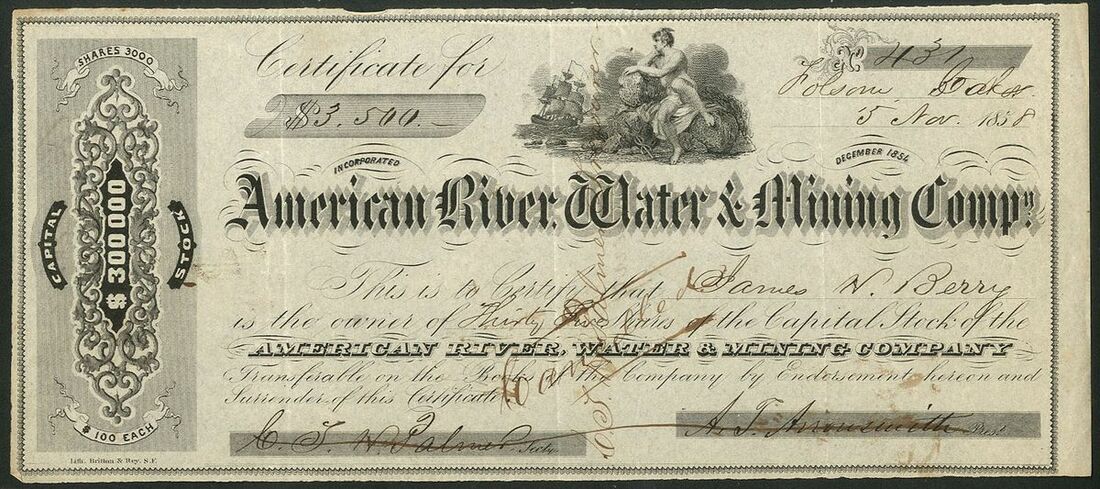 SHARES 3000
CAPITAL $300000 STOCK
$100 EACH
Certificate for
$3.500.-
No 437
Folsom
5 Nov. 1858
INCORPORATED DECEMBER 1854
American River, Water & Mining Compy.
This is to Certify that James W. Berry
is the owner of Thirty Five shares of the Capital Stock of the
AMERICAN RIVER, WATER & MINING COMPANY
Transferable on the Books of the Company by Endorsement hereon and
Surrender of this Certificate.
Cancelled
C. T. H. Palmer Secty.
A. T. Arrowsmith Prest.
Lith. Britton & Rey. S.F.